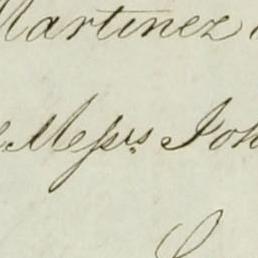 Martinez
Messrs Joh